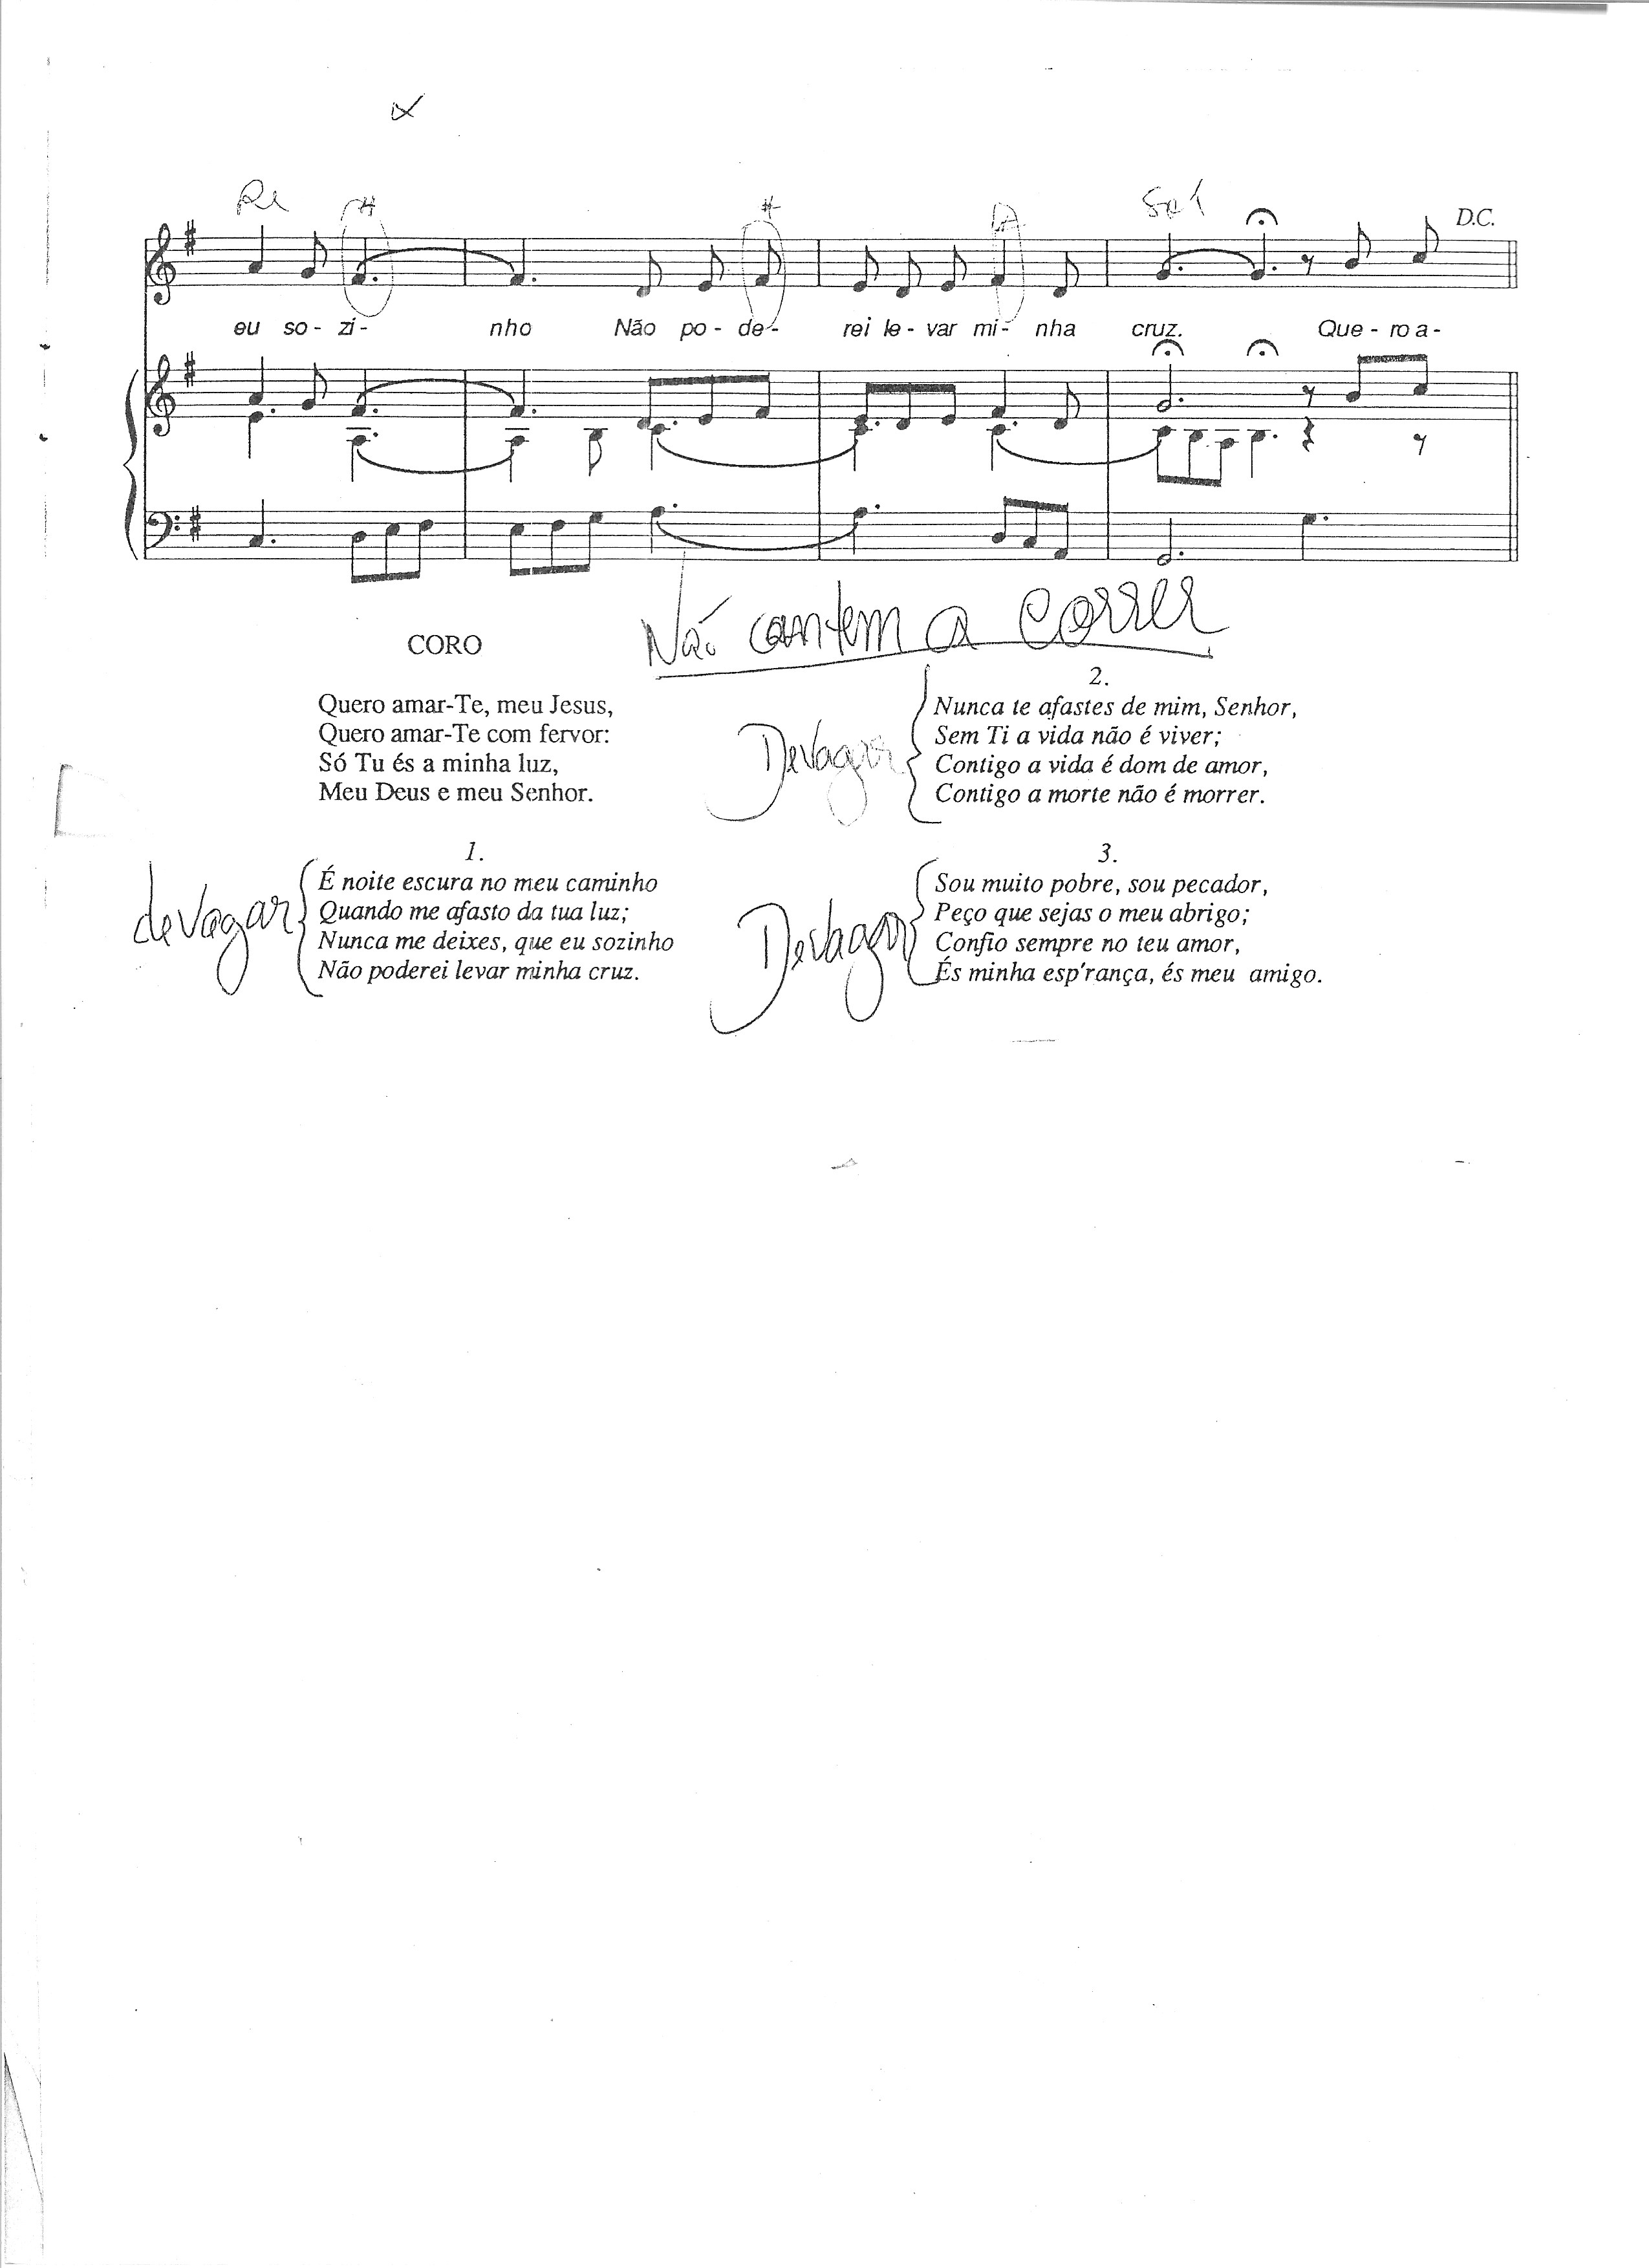 Ré
# #
Sol
D.C.
eu so - zi - nho Não po - de - rei le - var mi - nha cruz. Que - ro a -
Não cantem a correr
CORO
Quero amar-Te, meu Jesus,
Quero amar-Te com fervor:
Só Tu és a minha luz,
Meu Deus e meu Senhor.
2.
Devagar
Nunca te afastes de mim, Senhor,
Sem Ti a vida não é viver;
Contigo a vida é dom de amor,
Contigo a morte não é morrer.
1.
devagar
É noite escura no meu caminho
Quando me afasto da tua luz;
Nunca me deixes, que eu sozinho
Não poderei levar minha cruz.
3.
Devagar
Sou muito pobre, sou pecador,
Peço que sejas o meu abrigo;
Confio sempre no teu amor,
És minha esp'rança, és meu amigo.